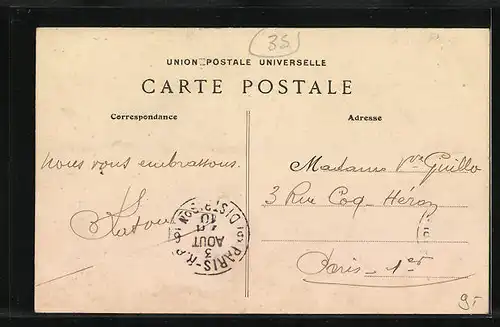 35
UNION POSTALE UNIVERSELLE
CARTE POSTALE
Correspondance
Adresse
nous vous embrassons.
Madame Vve Guillo
3 Rue Coq-Héron
Paris-1er
PARIS-R.P.
DISTRIBUTION
3
AOUT
10
95